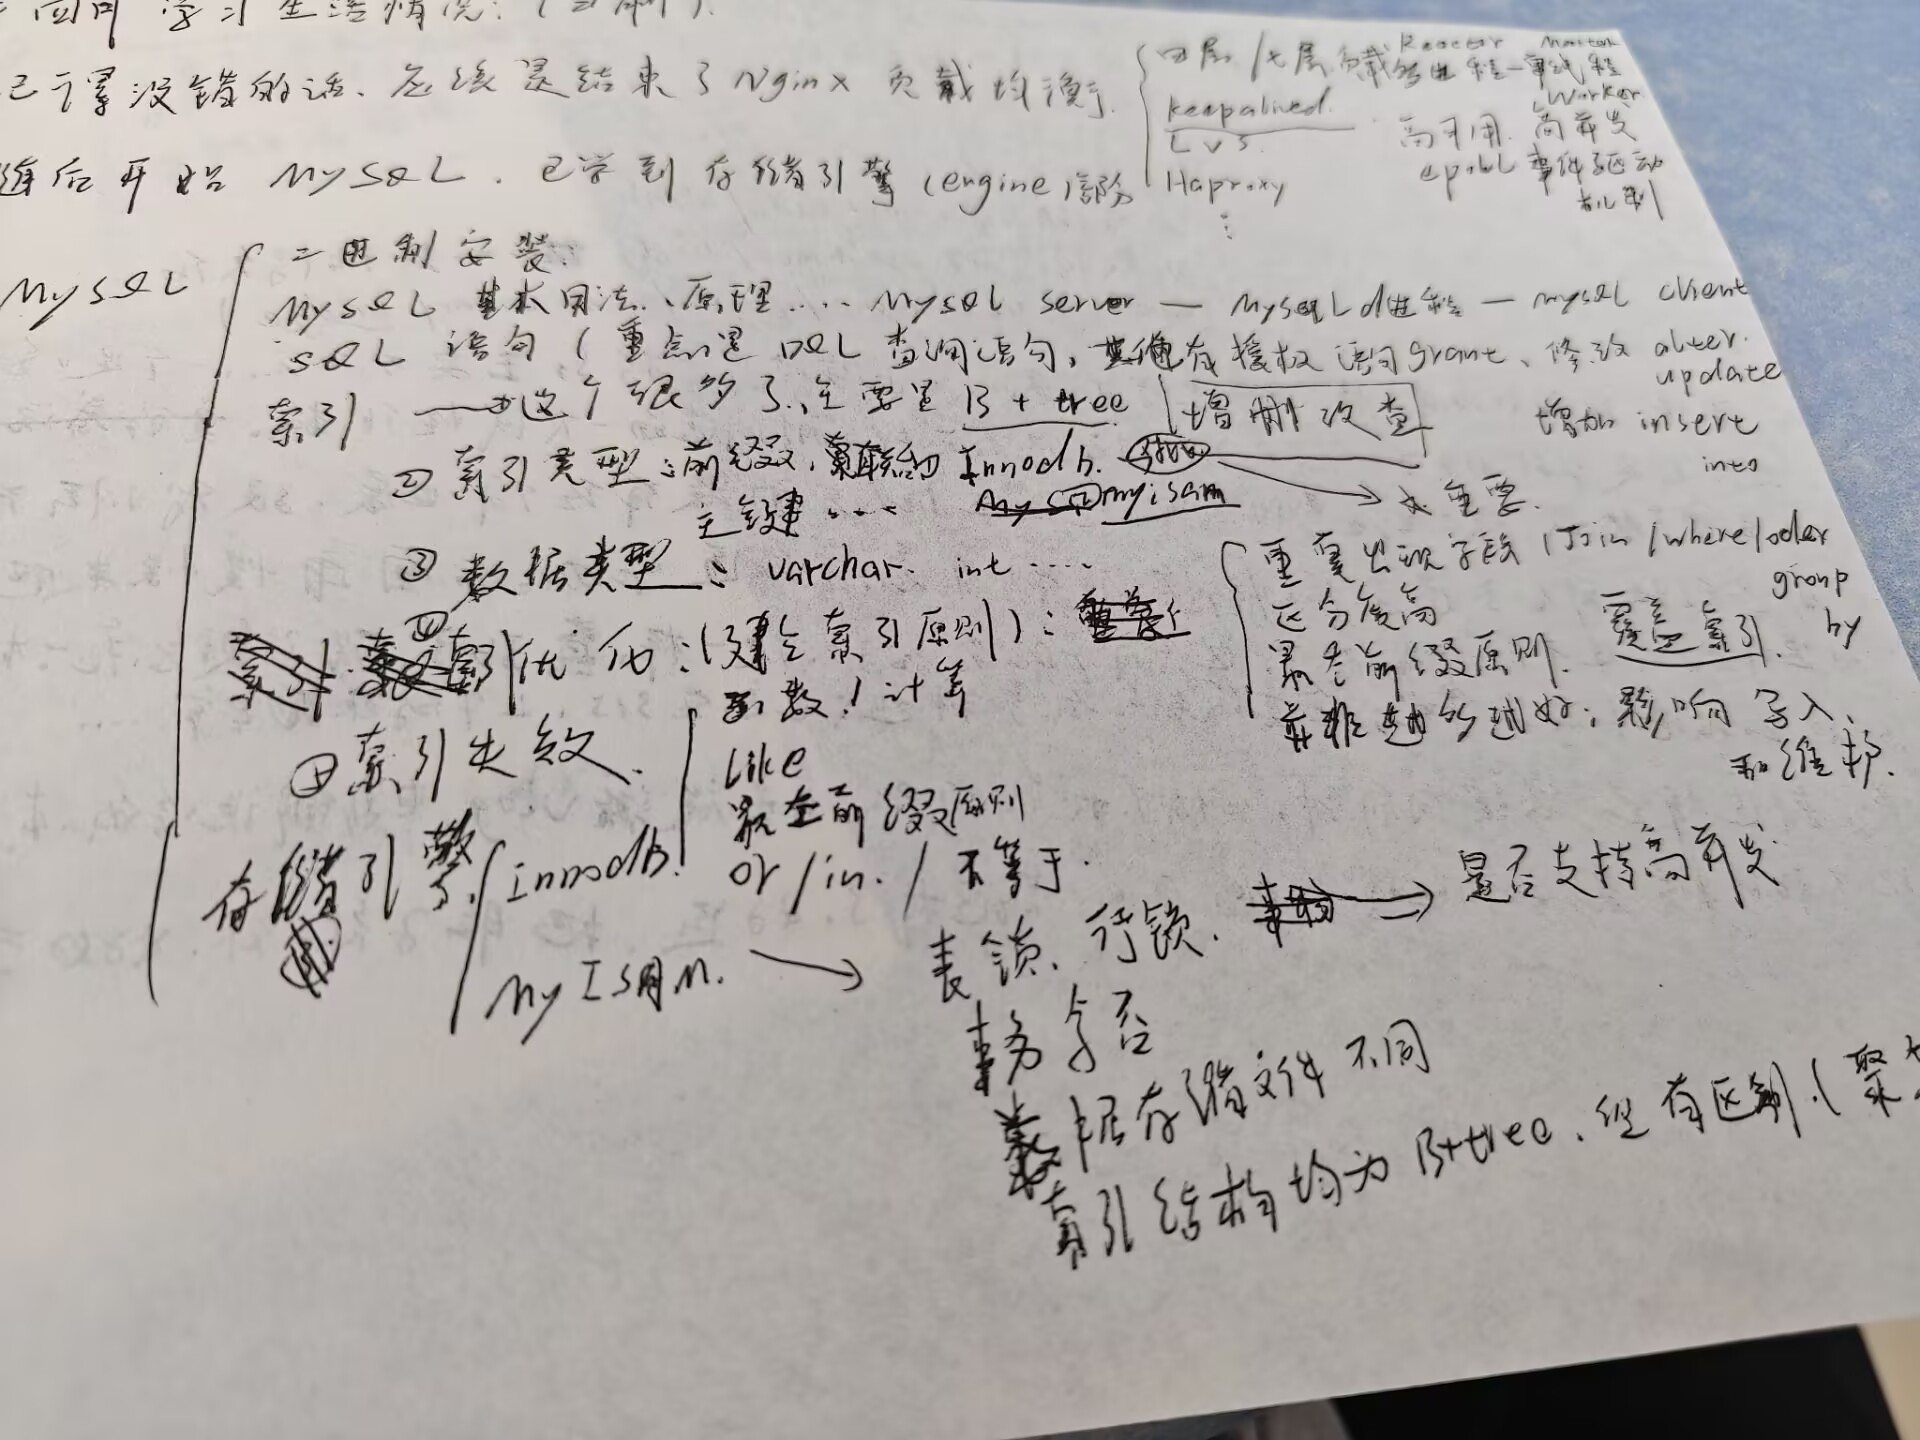 回时 学习生活情况:
记得没错的话、应该是结束了Nginx负载均衡
四层/七层负载
Reactor Master
单线程
Worker
keepalived.
LVS.
Haproxy
高可用. 高并发
epoll 事件驱动
机制
随后开始 MySQL. 已学到存储引擎(engine)部分
MySQL
二进制安装.
MySQL 基本用法、原理.... MySQL server — Mysqld进程 — mysql client
SQL 语句(重点是DQL查询语句, 其他有授权语句grant、修改 alter.
update
增加 insert
into
增删改查
索引 → 这个很多了,主要是B+tree
② 索引类型:前缀、联合 Innodb.
主键.... myisam
重要.
③ 数据类型: varchar. int ....
重复出现字段(Join/where/oder
group
by
区分度高
最左前缀原则. 覆盖索引.
并非越多越好; 影响写入、
和维护.
④ 索引优化:(建立索引原则):
① 索引失效.
函数/计算
Like
最左前缀原则
or/in./不等于.
存储引擎
Innodb.
MyISAM. →
表锁、行锁. → 是否支持高并发
事务与否
数据存储文件不同
索引结构均为B+tree、但有区别.(聚